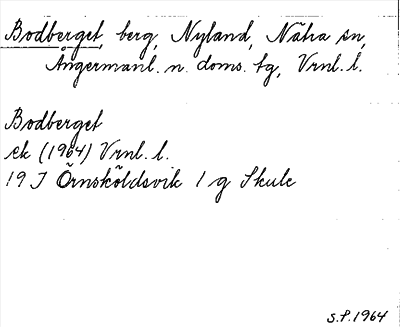 Bodberget, berg, Nyland, Nätra sn,
Ångermanl. n. doms. tg, Vrnl. l.
Bodberget
ek (1964) Vrnl. l.
19 J Örnsköldsvik 1 g Skule
S.P. 1964